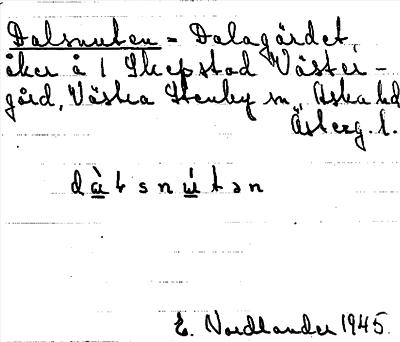 Dalsnuten = Dalagärdet,
åker å 1 Skepstad Väster-
gård, Västra Stenby sn, Aska hd
Österg. l.
dàlsnútən
E. Nordlander 1945.